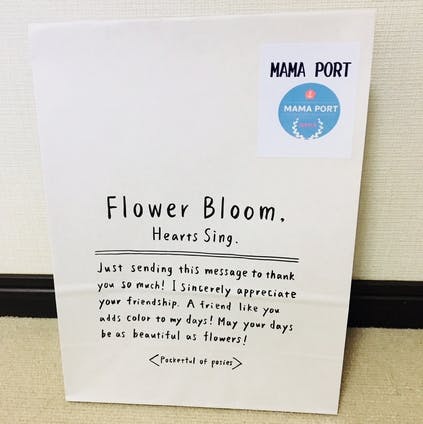 MAMA PORT
MAMA PORT
Flower Bloom.
Hearts Sing.
Just sending this message to thank
you so much! I sincerely appreciate
your friendship. A friend like you
adds color to my days! May your days
be as beautiful as flowers!
<Pocketful of posies>